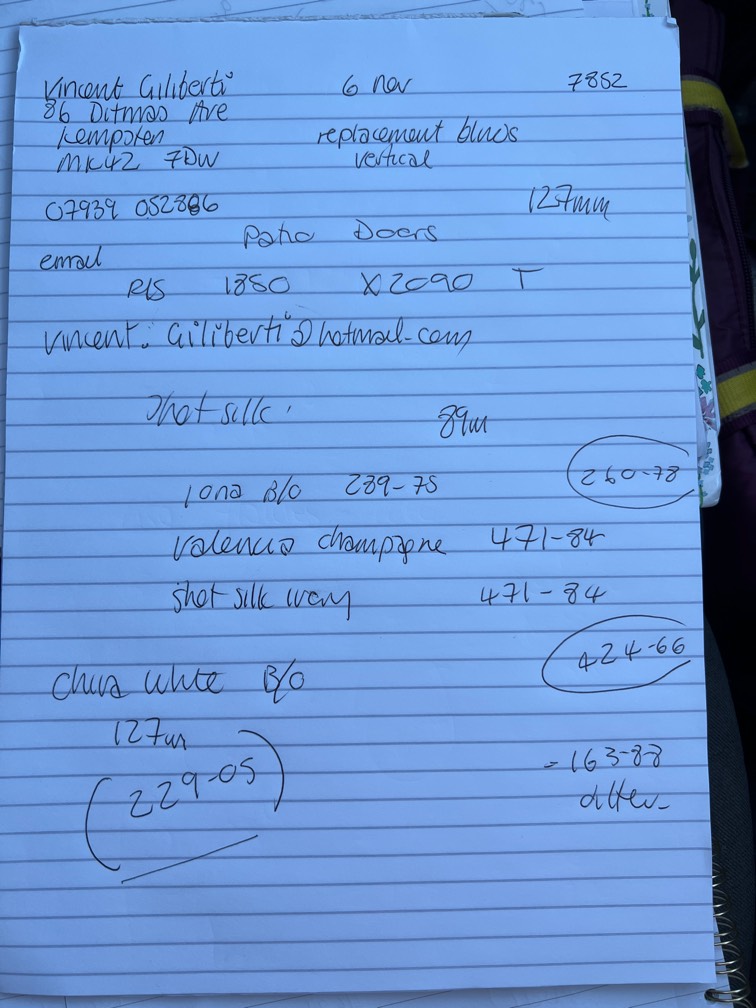 Vincent Giliberti 6 nov 7852
86 Ditmas Ave
Kempston replacement blinds
MK42 7DW vertical
07939 052886 127mm
Patio Doors
email
R/S 1850 X 2090 T
Vincent.Giliberti@hotmail.com
Shot silk. 89m
Iona B/O 289-75 260-78
Valencia champagne 471-84
Shot silk ivory 471-84
424-66
China White B/O
127m
229-05 = 163-88
differ